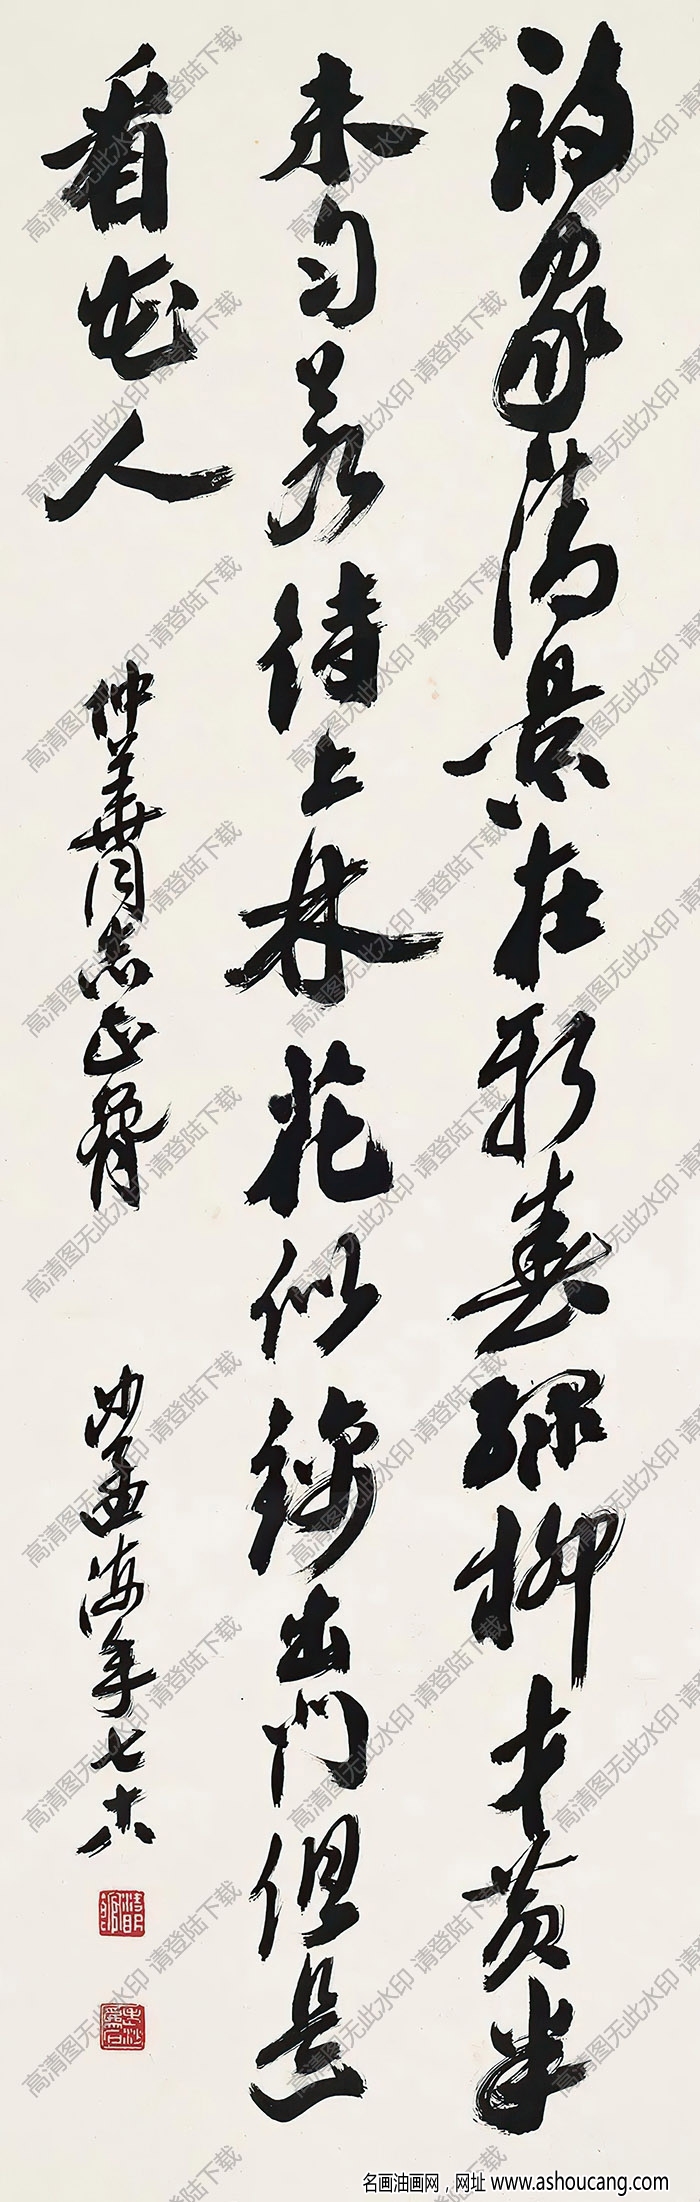 詩家清景在新春綠柳才黄半
未匀若待上林花似錦出門但是
看花人
仲華同志正
沙孟海年七十八
高清图无此水印 请登陆下载
名画油画网，网址 www.ashoucang.com